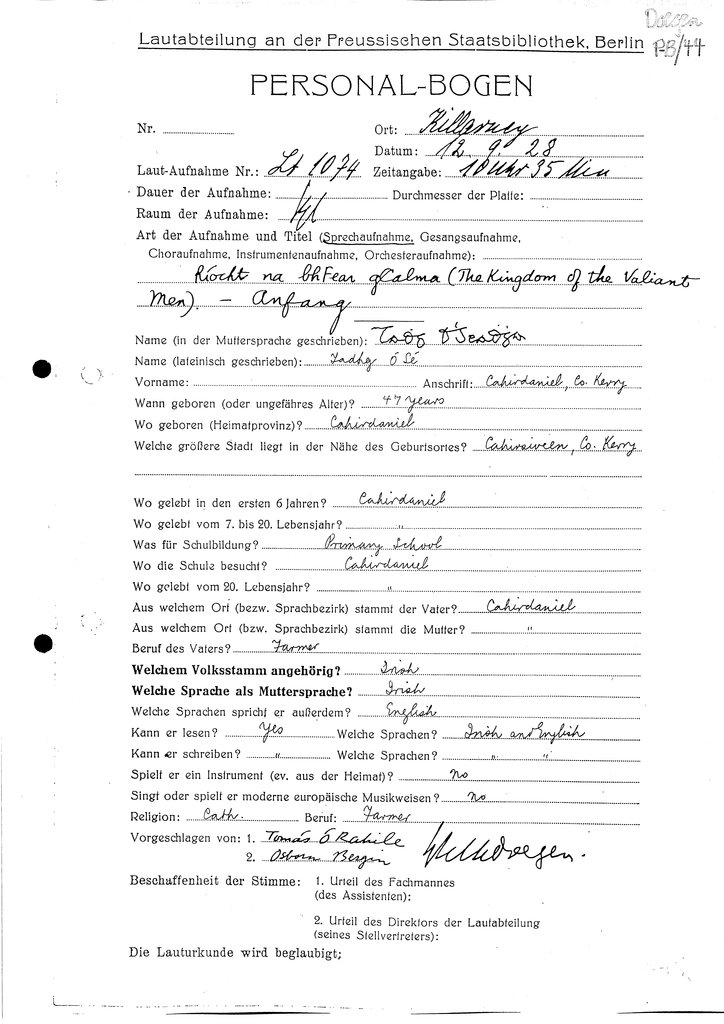 Doegen
Lautabteilung an der Preussischen Staatsbibliothek, Berlin
PB/44
PERSONAL-BOGEN
Nr. Ort: Killarney
Datum: 12. 9. 28
Laut-Aufnahme Nr.: LA 1074 Zeitangabe: 10 Uhr 35 Min
Dauer der Aufnahme: Durchmesser der Platte:
Raum der Aufnahme:
Art der Aufnahme und Titel (Sprechaufnahme, Gesangsaufnahme,
Choraufnahme, Instrumentenaufnahme, Orchesteraufnahme):
Ríocht na bhFear gCalma (The Kingdom of the Valiant
Men). – Anfang
Name (in der Muttersprache geschrieben): Tadg
Name (lateinisch geschrieben): Tadhg Ó Sé
Vorname: Anschrift: Cahirdaniel, Co. Kerry
Wann geboren (oder ungefähres Alter)? 47 years
Wo geboren (Heimatprovinz)? Cahirdaniel
Welche größere Stadt liegt in der Nähe des Geburtsortes? Cahirsiveen, Co. Kerry
Wo gelebt in den ersten 6 Jahren? Cahirdaniel
Wo gelebt vom 7. bis 20. Lebensjahr? "
Was für Schulbildung? Primary School
Wo die Schule besucht? Cahirdaniel
Wo gelebt vom 20. Lebensjahr? "
Aus welchem Ort (bezw. Sprachbezirk) stammt der Vater? Cahirdaniel
Aus welchem Ort (bzw. Sprachbezirk) stammt die Mutter? "
Beruf des Vaters? Farmer
Welchem Volksstamm angehörig? Irish
Welche Sprache als Muttersprache? Irish
Welche Sprachen spricht er außerdem? English
Kann er lesen? Yes Welche Sprachen? Irish and English
Kann er schreiben? " Welche Sprachen? " "
Spielt er ein Instrument (ev. aus der Heimat)? No
Singt oder spielt er moderne europäische Musikweisen? No
Religion: Cath. Beruf: Farmer
Vorgeschlagen von: 1. Tomás Ó Rahile
2. Osborn Bergin
Beschaffenheit der Stimme: 1. Urteil des Fachmannes
(des Assistenten):
2. Urteil des Direktors der Lautabteilung
(seines Stellvertreters):
Die Lauturkunde wird beglaubigt;